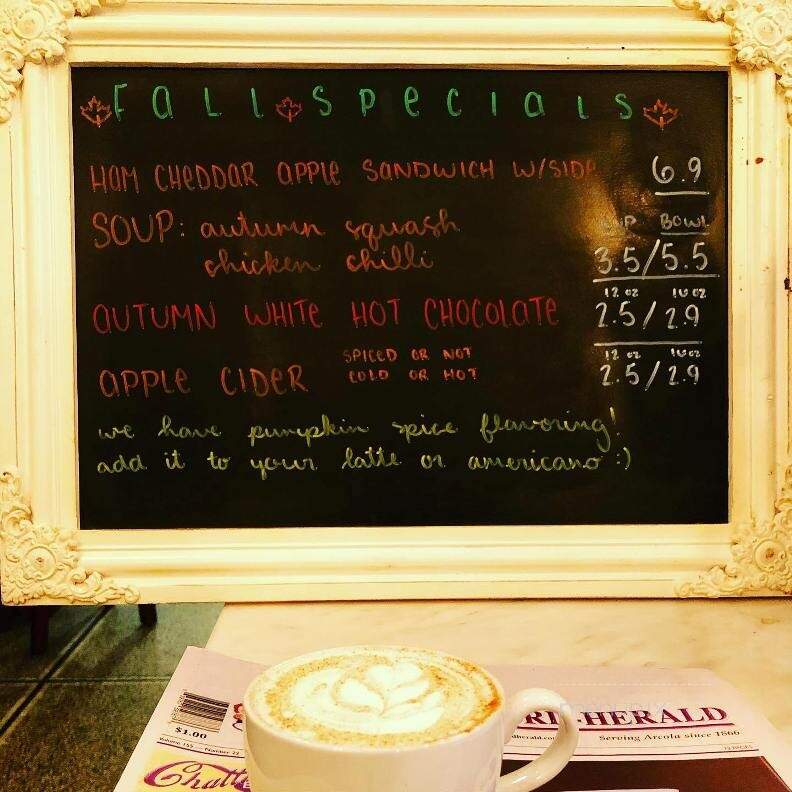 Fall Specials
HAM CHEDDAR APPLE SANDWICH W/SIDE 6.9
CUP BOWL
SOUP: autumn squash
chicken chilli 3.5/5.5
12 oz 16 oz
AUTUMN WHITE HOT CHOCOLATE 2.5/2.9
SPICED OR NOT 12 oz 16 oz
APPLE CIDER COLD OR HOT 2.5/2.9
we have pumpkin spice flavoring!
add it to your latte or americano :)
$1.00
-HERALD
Serving Arcola since 1866